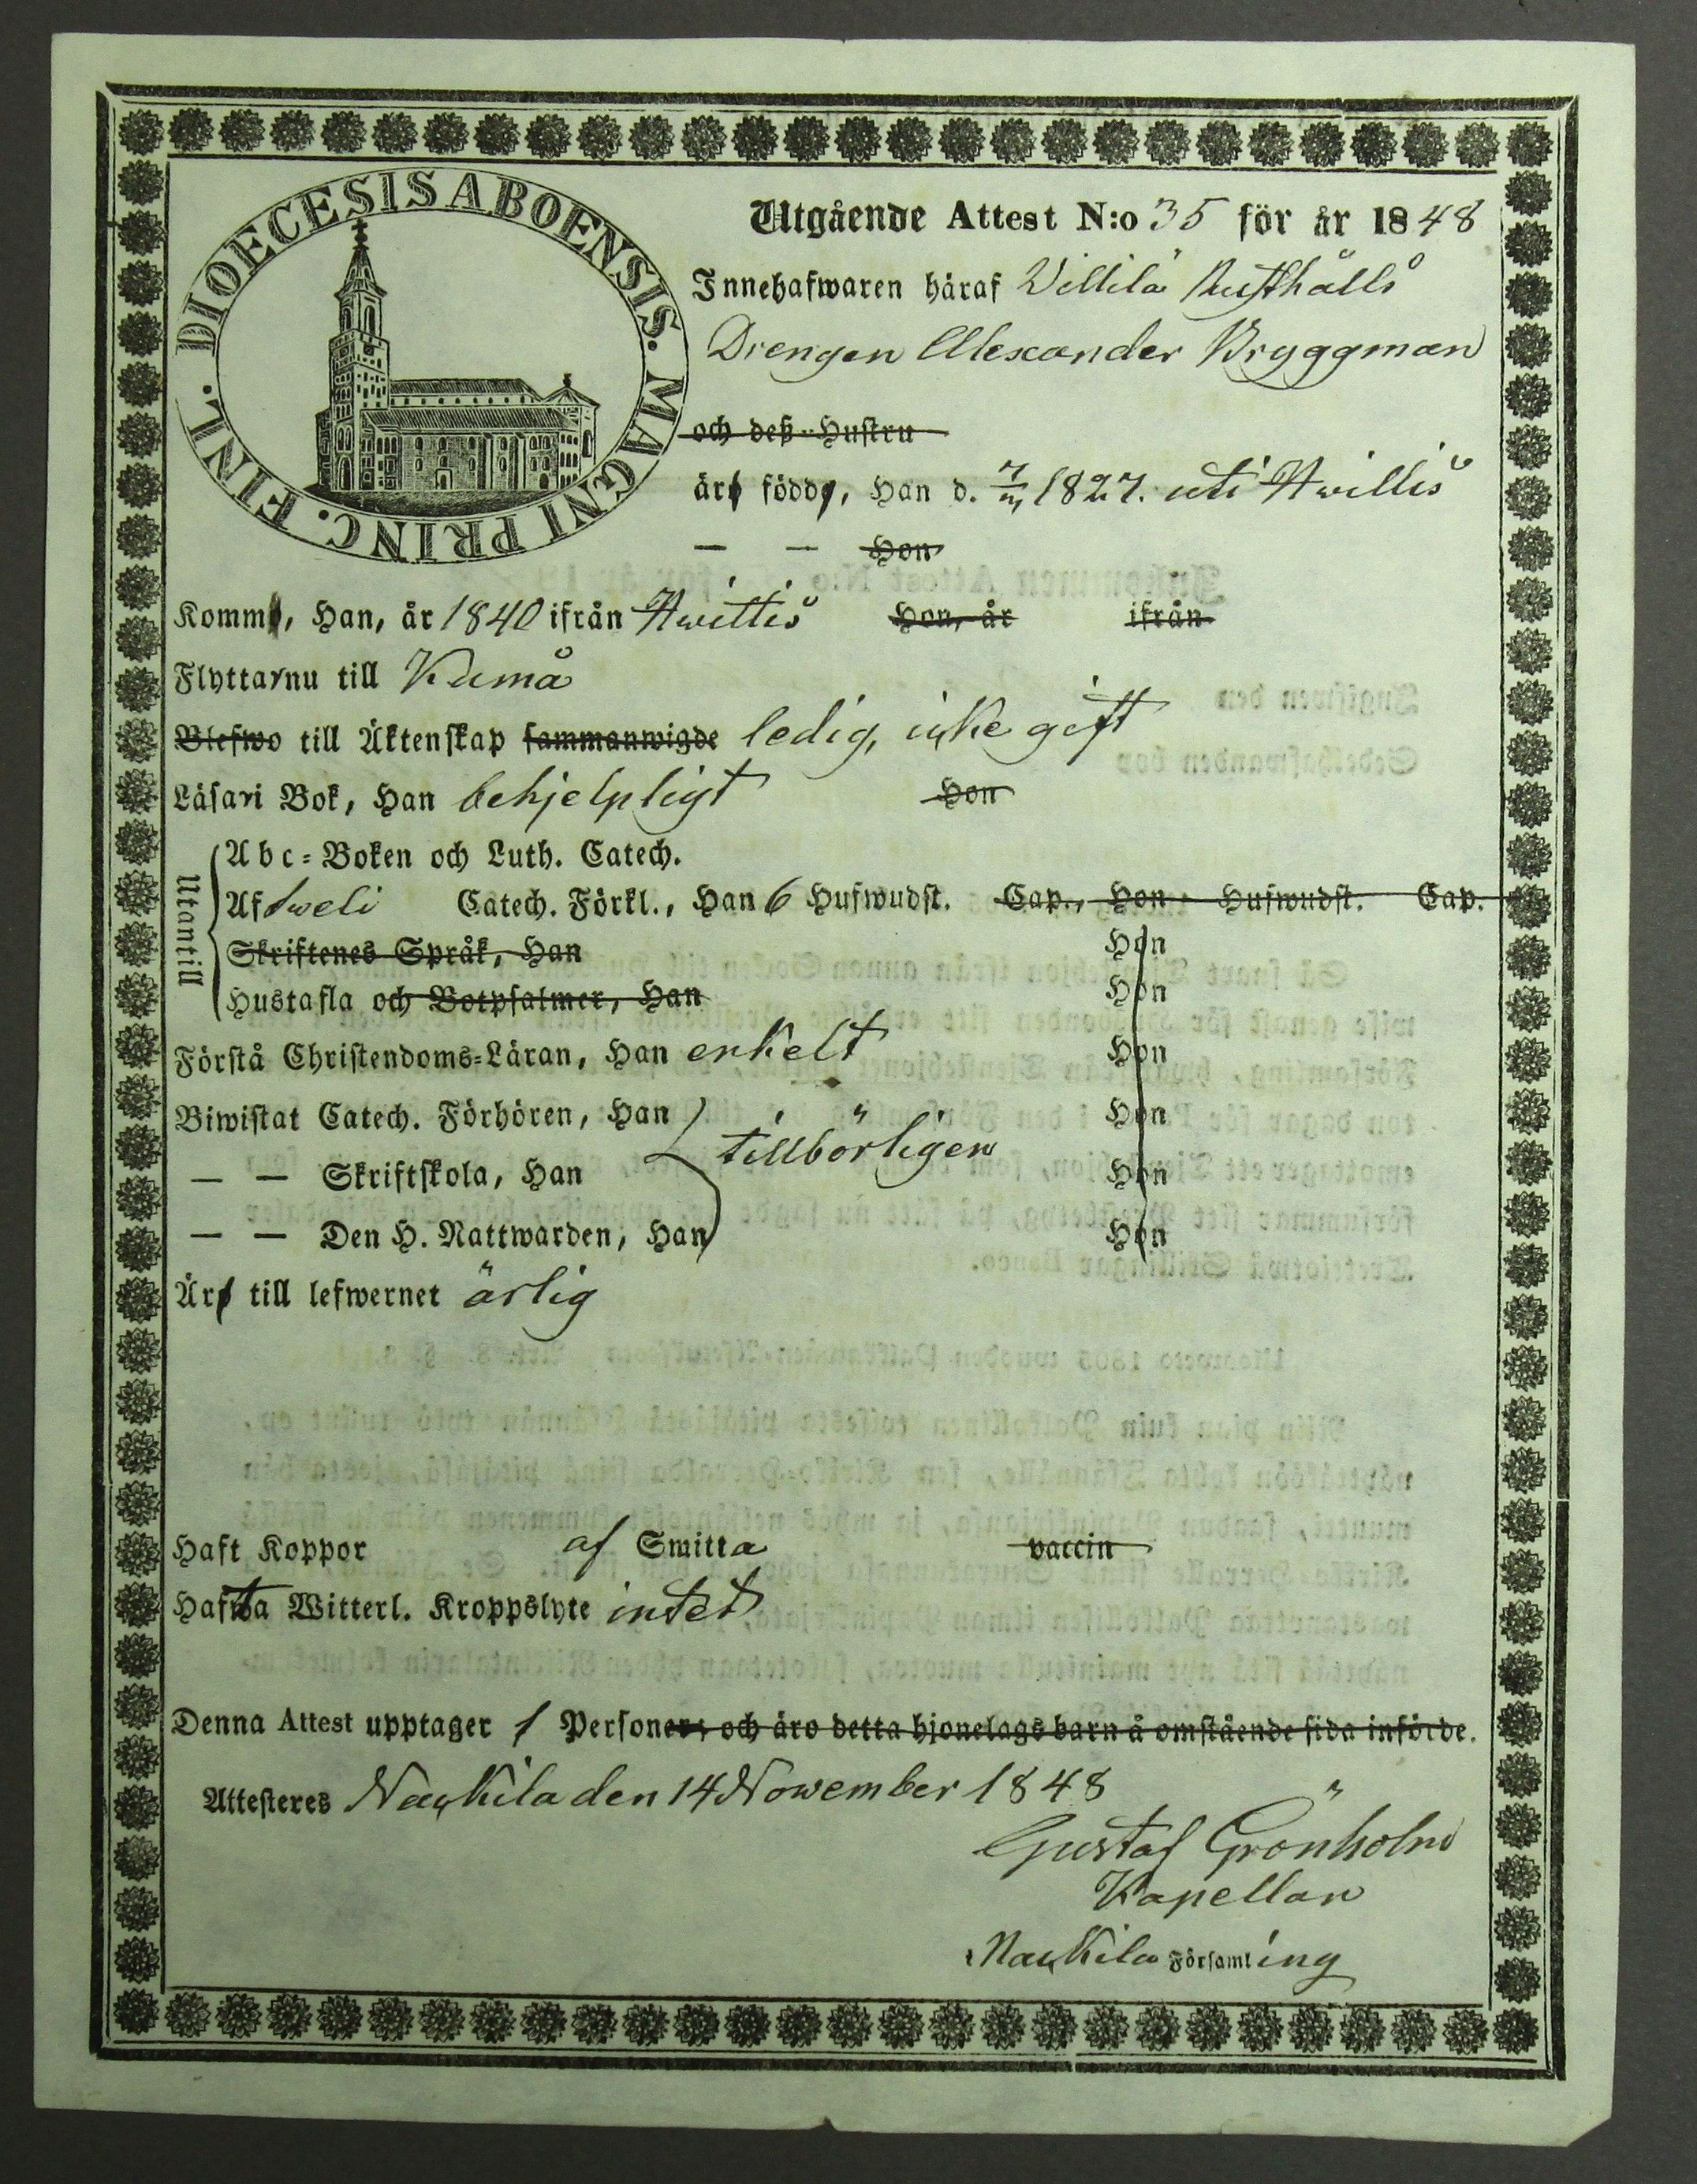 DIOECESIS ABOENSIS. MAGNI PRINC. FINL.
Utgående Attest N:o 35 för år 1848
Innehafwaren häraf Villilä Rusthålls
Drengen Alexander Bryggman
och deß Hustru
äro född, Han d. 1827. uti Hvittis
— — Hon
Komm, Han, år 1840 ifrån Hvittis Hon, år ifrån
Flyttar nu till Kumå
Blefwo till Äktenskap sammanwigde ledig, icke gift
Läsari Bok, Han behjelpligt Hon
Utantill
Abc-Boken och Luth. Catech.
Af Sweli Catech. Förkl., Han 6 Hufwudst. Cap., Hon Hufwudst. Cap.
Skriftenes Språk, Han Hon
Hustafla och Botpsalmer, Han Hon
Förstå Christendoms-Läran, Han enkelt Hon
Biwistat Catech. Förhören, Han Hon
tillbörligen
— — Skriftskola, Han Hon
— — Den H. Nattwarden, Han Hon
Är till lefwernet ärlig
Haft Koppor af Smitta vaccin
Hafta Witterl. Kroppslyte intet
Denna Attest upptager 1 Personer; och äro detta hjonelags barn å omstående sida införde.
Attesteres Nackila den 14 November 1848
Gustaf Grönholm
Kapellan
Nackila Församling